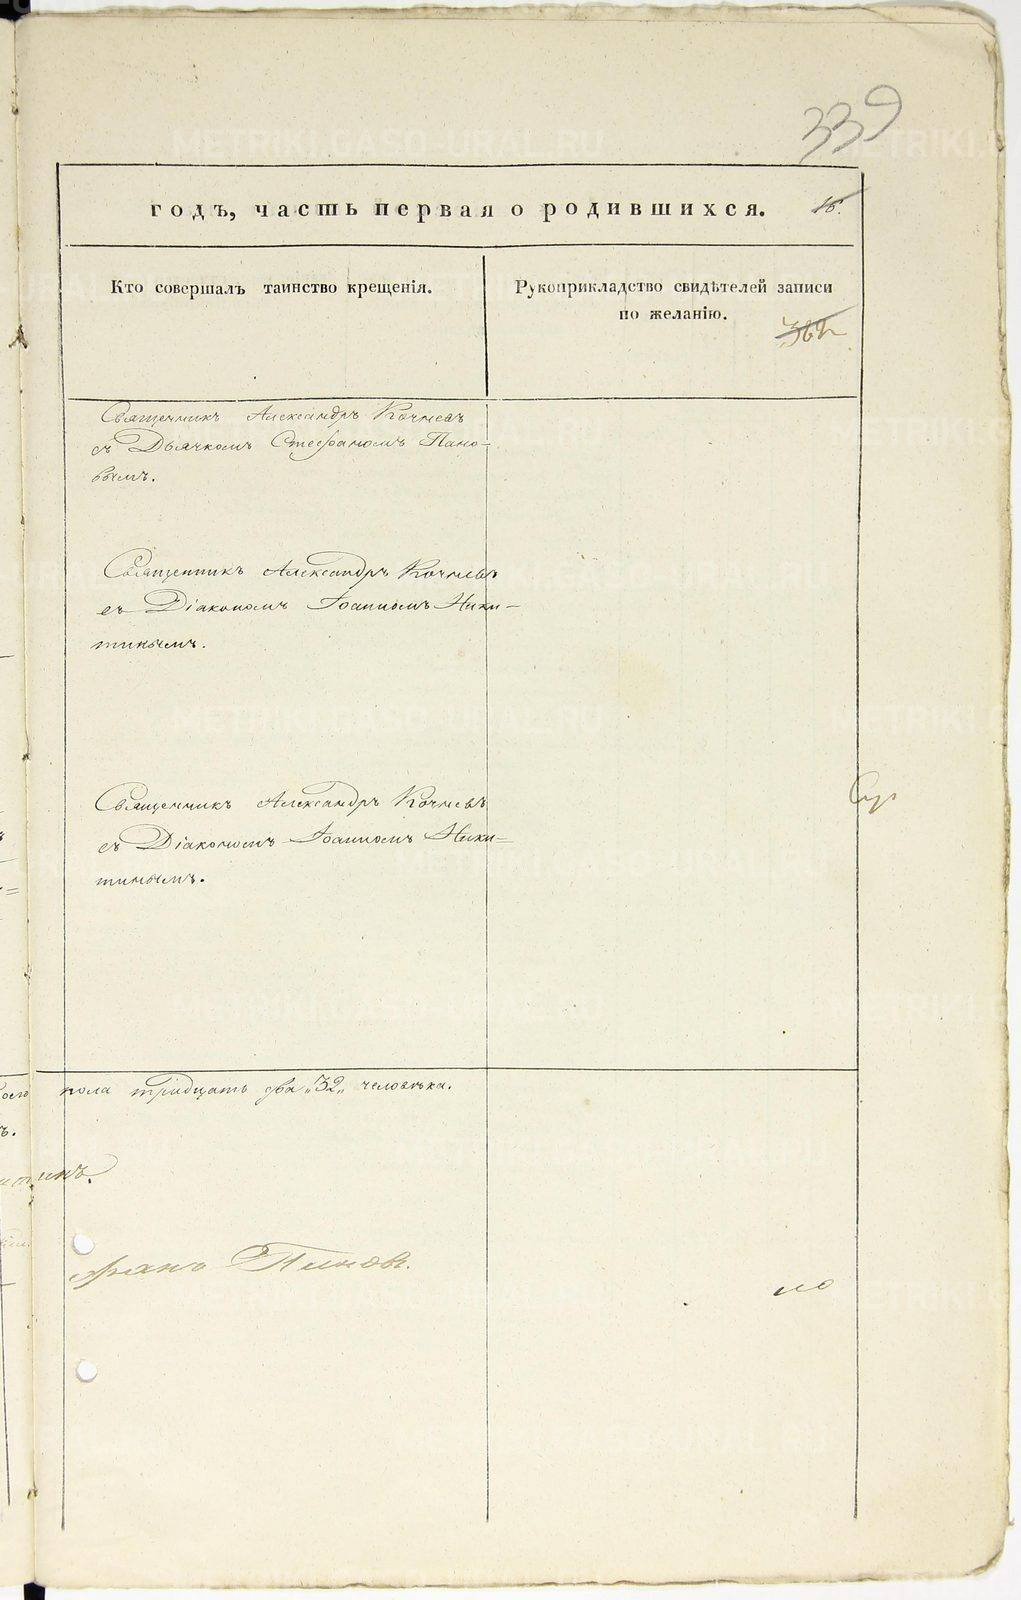 339
годъ, часть первая о родившихся.
16.
Кто совершалъ таинство крещенія.
Рукоприкладство свидѣтелей записи
по желанію.
362
Священникъ Александръ Кочневъ
съ Дьячкомъ Стефаномъ Пано-
вымъ.
Священникъ Александръ Кочневъ
съ Діакономъ Іоанномъ Ники-
тинымъ.
Священникъ Александръ Кочневъ
съ Діакономъ Іоанномъ Ники-
тинымъ.
пола тридцать два „32„ человѣка.
Пановъ.
но
METRIKI.GASO-URAL.RU